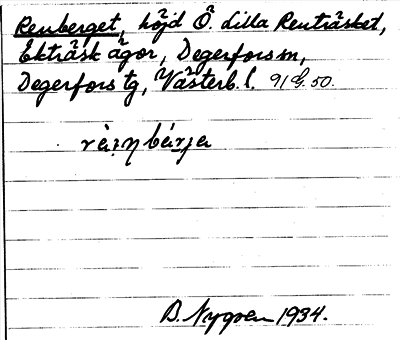 Renberget, höjd Ö. Lilla Renträsket,
Ekträsk ägor, Degerfors sn,
Degerfors tg, Västerb. l. 91 G. 50.
B. Nygren 1934.